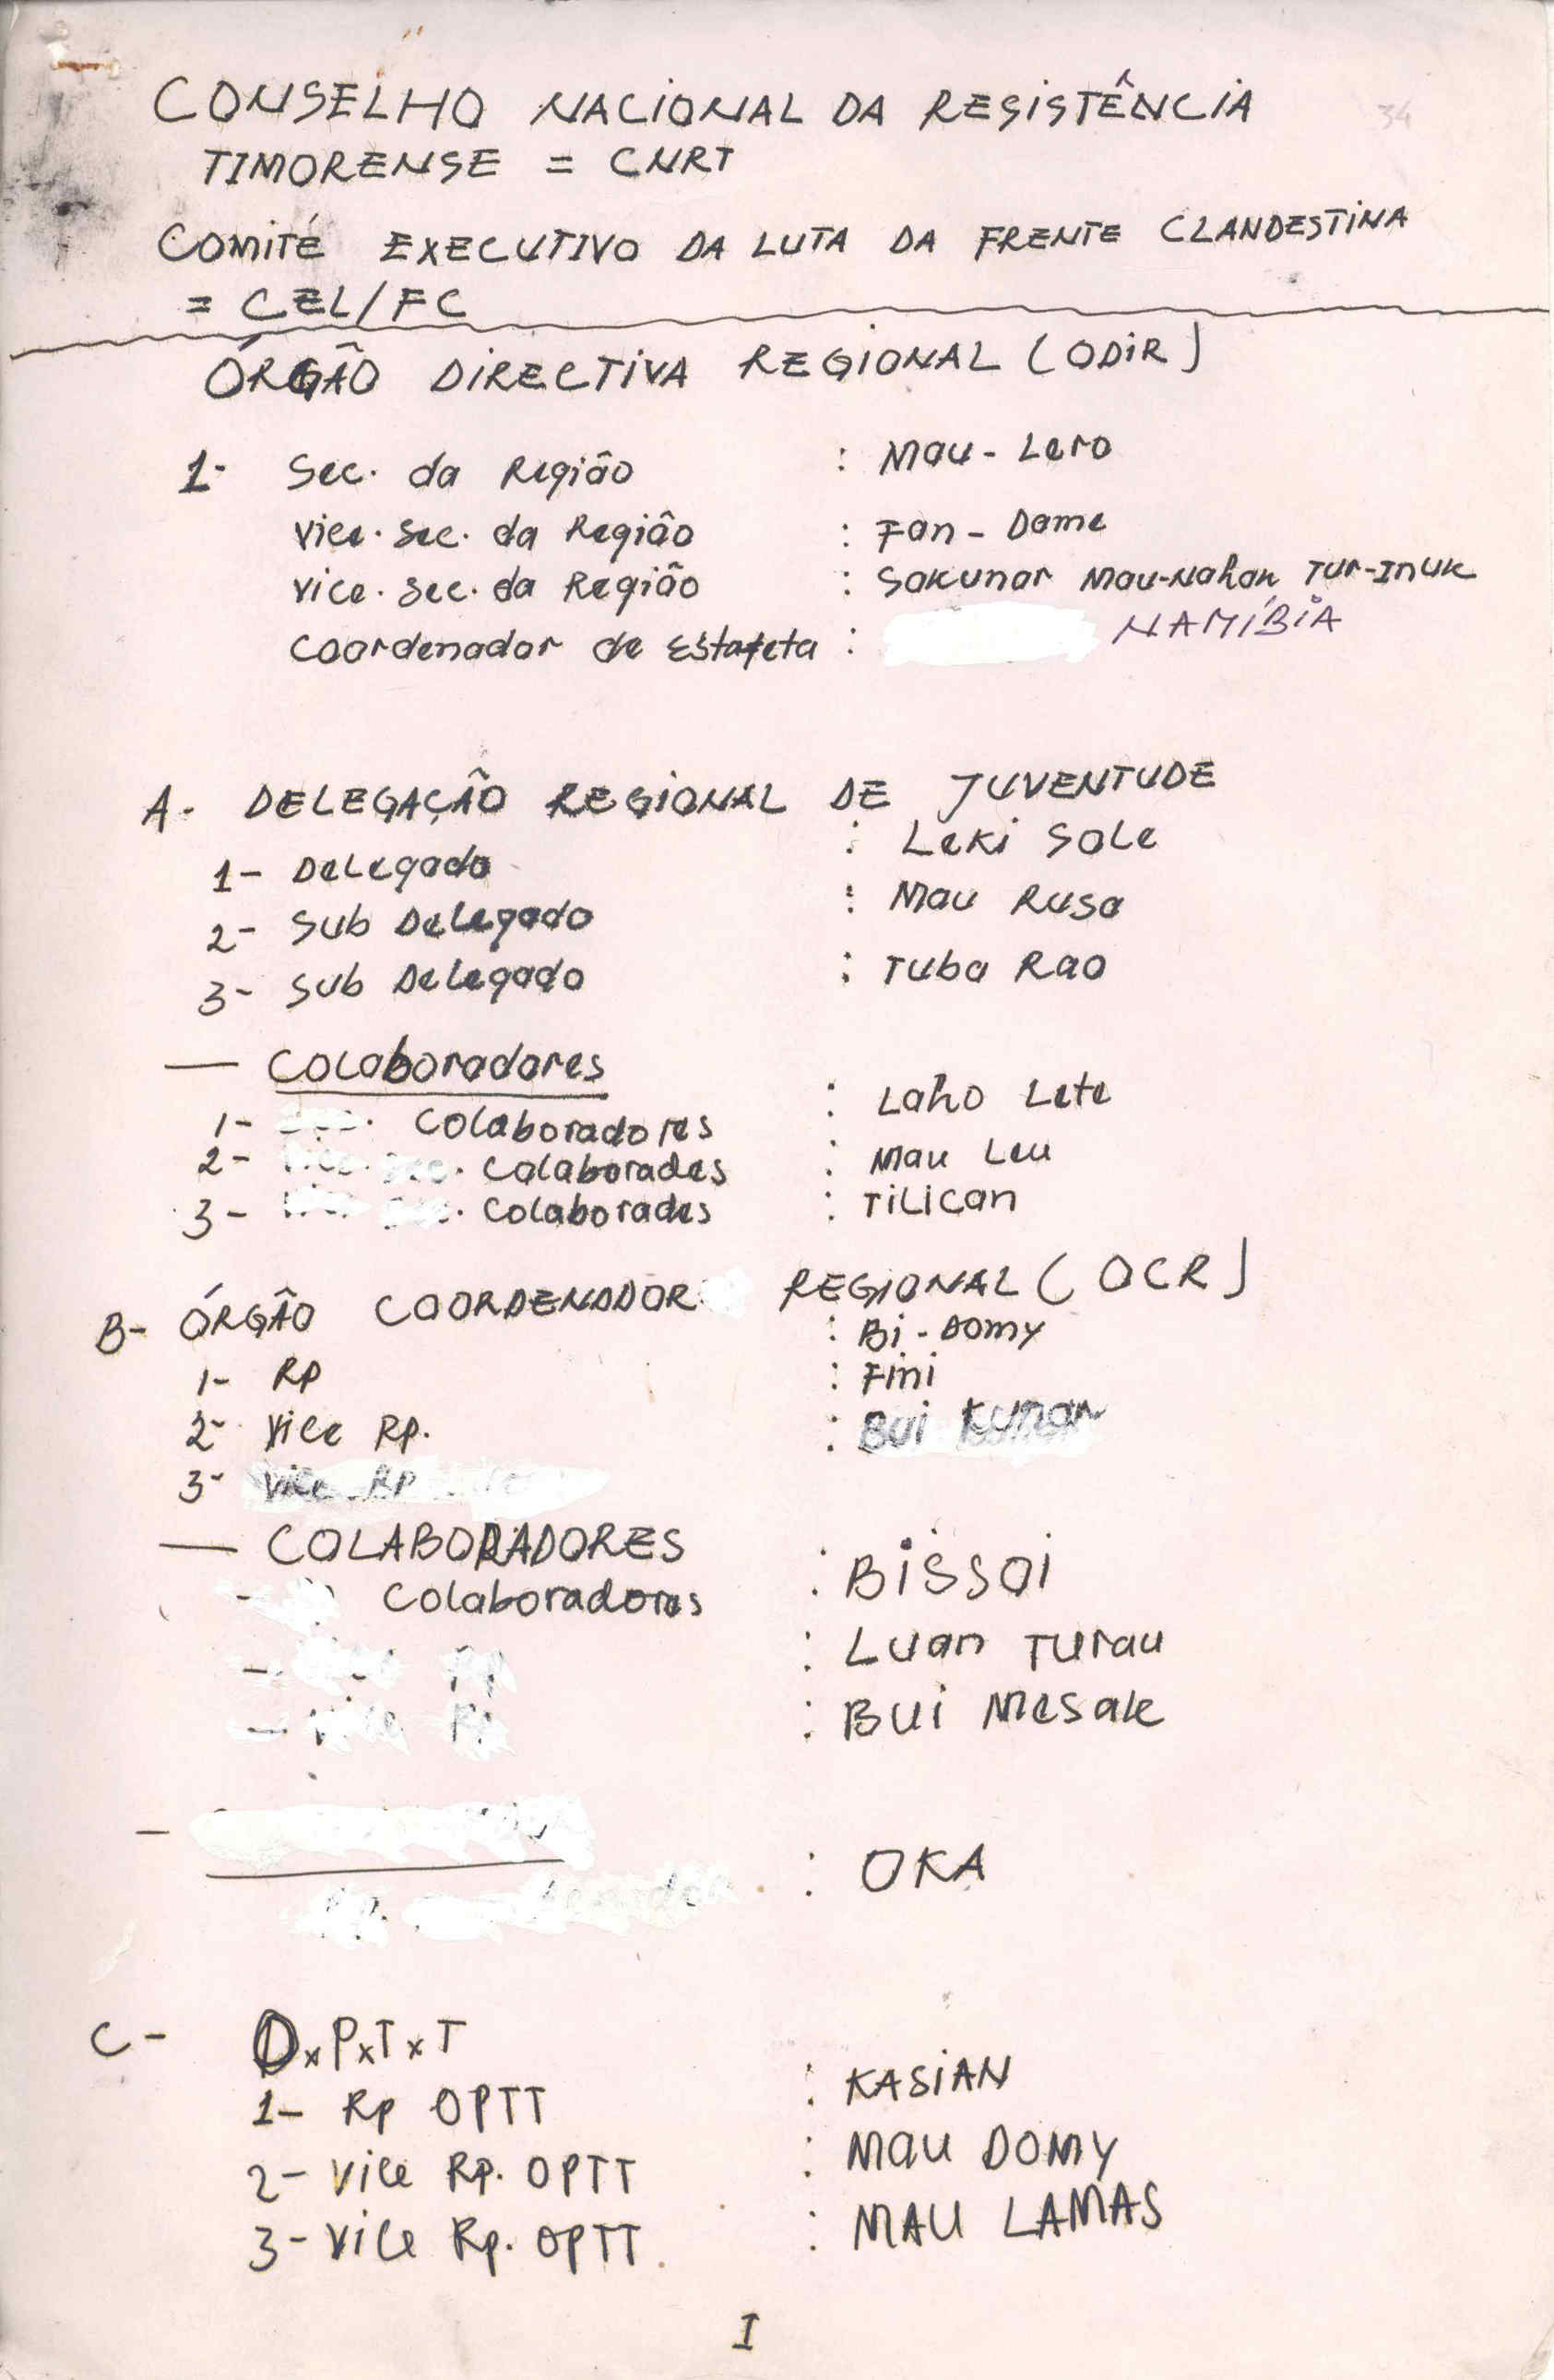 CONSELHO NACIONAL DA RESISTÊNCIA
34
TIMORENSE = CNRT
COMITÉ EXECUTIVO DA LUTA DA FRENTE CLANDESTINA
= CEL/FC
ÓRGÃO DIRECTIVA REGIONAL (ODIR)
1- Sec. da Região : Mau-Lero
Vice. Sec. da Região : Fan-Dame
Vice. Sec. da Região : Sakunar Mau-Nahak Tur-Inuk
Coordenador de Estafeta : NAMÍBIA
A- DELEGAÇÃO REGIONAL DE JUVENTUDE
1- Delegado : Leki Sole
2- Sub Delegado : Mau Rusa
3- Sub Delegado : Tuba Rao
— Colaboradores
1- Colaboradores : Laho Lete
2- Vice Sec. Colaborades : Mau Leu
3- Sec. Colaborades : Tilican
B- ÓRGÃO COORDENADOR REGIONAL (OCR)
1- RP : Bi-Domy
2- Vice RP. : Fini
3- Vice RP : Bui Kunan
— COLABORADORES
- Colaboradores : Bissoi
- RP : Luan Turau
- Vice RP : Bui Mesak
-
: OKA
C- OxPxTxT
1- Rp OPTT : KASIAN
2- Vice Rp. OPTT : MAU DOMY
3- Vice Rp. OPTT. : MAU LAMAS
I